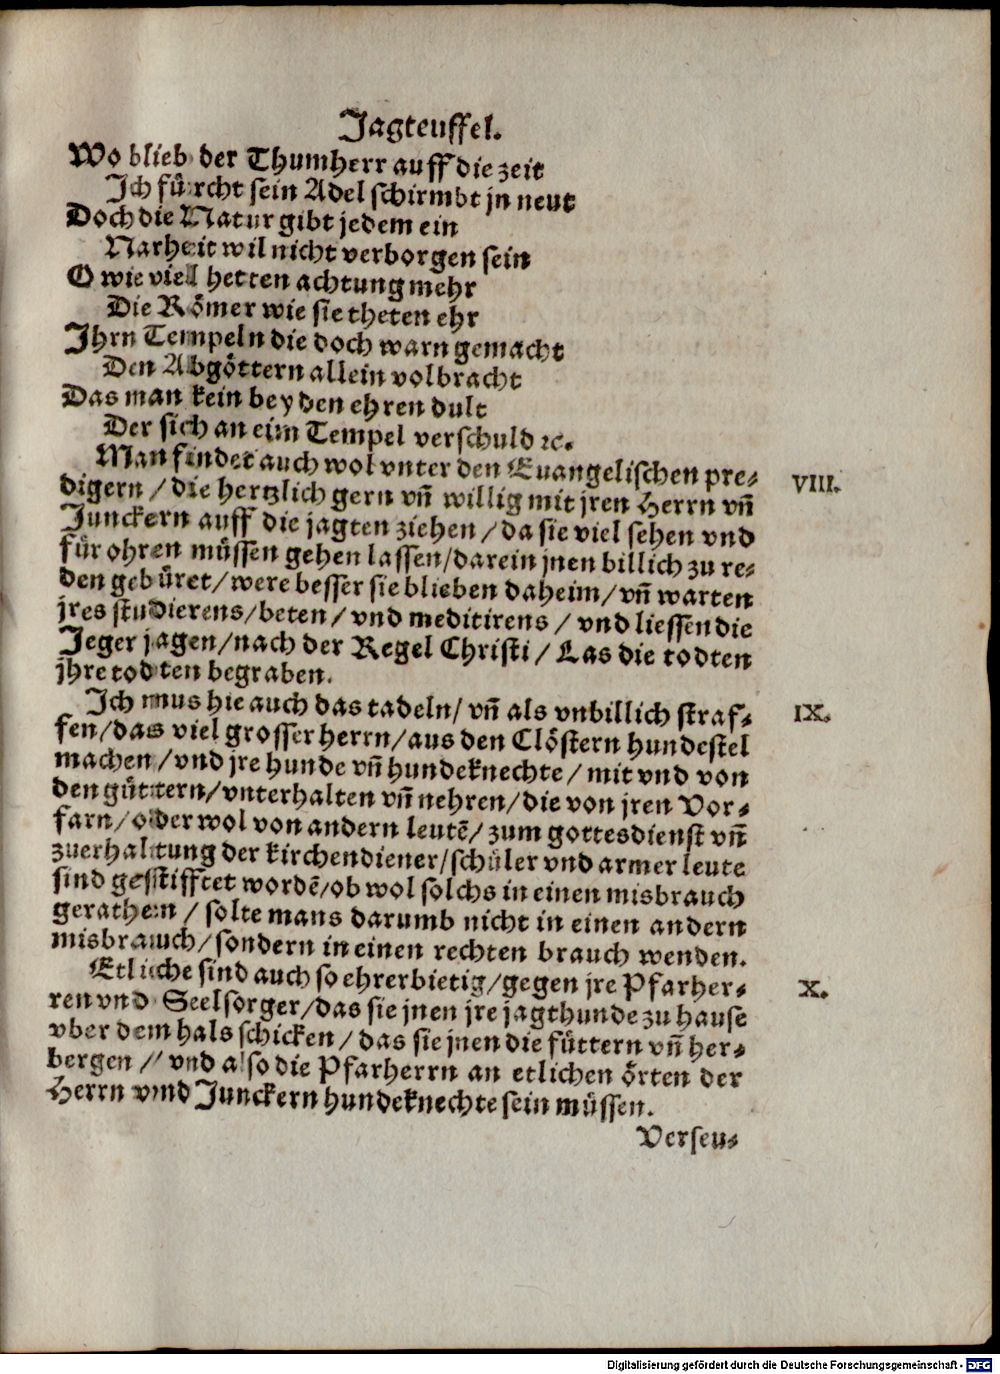 Jagteuffel.
Wo blieb der Thumherr auff die zeit
Ich fürcht sein Adel schirmbt jn neut
Doch die Natur gibt jedem ein
Narheit wil nicht verborgen sein
O wie viel hetten achtung mehr
Die Römer wie sie theten ehr
Ihrn Tempeln die doch warn gemacht
Den Abgöttern allein volbracht
Das man kein bey den ehren dult
Der sich an eim Tempel verschuld ꝛc.
Man findet auch wol vnter den Euangelischen pre-
digern / die hertzlich gern vñ willig mit jren Herrn vñ
Junckern auff die jagten ziehen / da sie viel sehen vnd
für ohren müssen gehen lassen/darein jnen billich zu re-
den gebüret/were besser sie blieben daheim/vñ warten
jres studierens/beten/ vnd meditirens / vnd liessen die
Jeger jagen/nach der Regel Christi / Las die todten
jhre todten begraben.
VIII.
Ich mus hie auch das tadeln/ vñ als vnbillich straf-
fen/das viel grosser herrn/aus den Clöstern hundestel
machen/vnd jre hunde vñ hundeknechte/mit vnd von
den güttern/vnterhalten vñ nehren/die von jren Vor-
farn/oder wol von andern leutẽ/ zum gottesdienst vñ
zuerhaltung der kirchendiener/schüler vnd armer leute
sind gestifftet wordẽ/ob wol solchs in einen misbrauch
gerathen / solte mans darumb nicht in einen andern
misbrauch/sondern in einen rechten brauch wenden.
IX.
Etliche sind auch so ehrerbietig/gegen jre Pfarher-
ren vnd Seelsorger/das sie jnen jre jagthunde zu hause
vber dem hals schicken/das sie jnen die füttern vñ her-
bergen / vnd also die Pfarherrn an etlichen örten der
Herrn vnd Junckern hundeknechte sein müssen.
X.
Verseu-
Digitalisierung gefördert durch die Deutsche Forschungsgemeinschaft - DFG